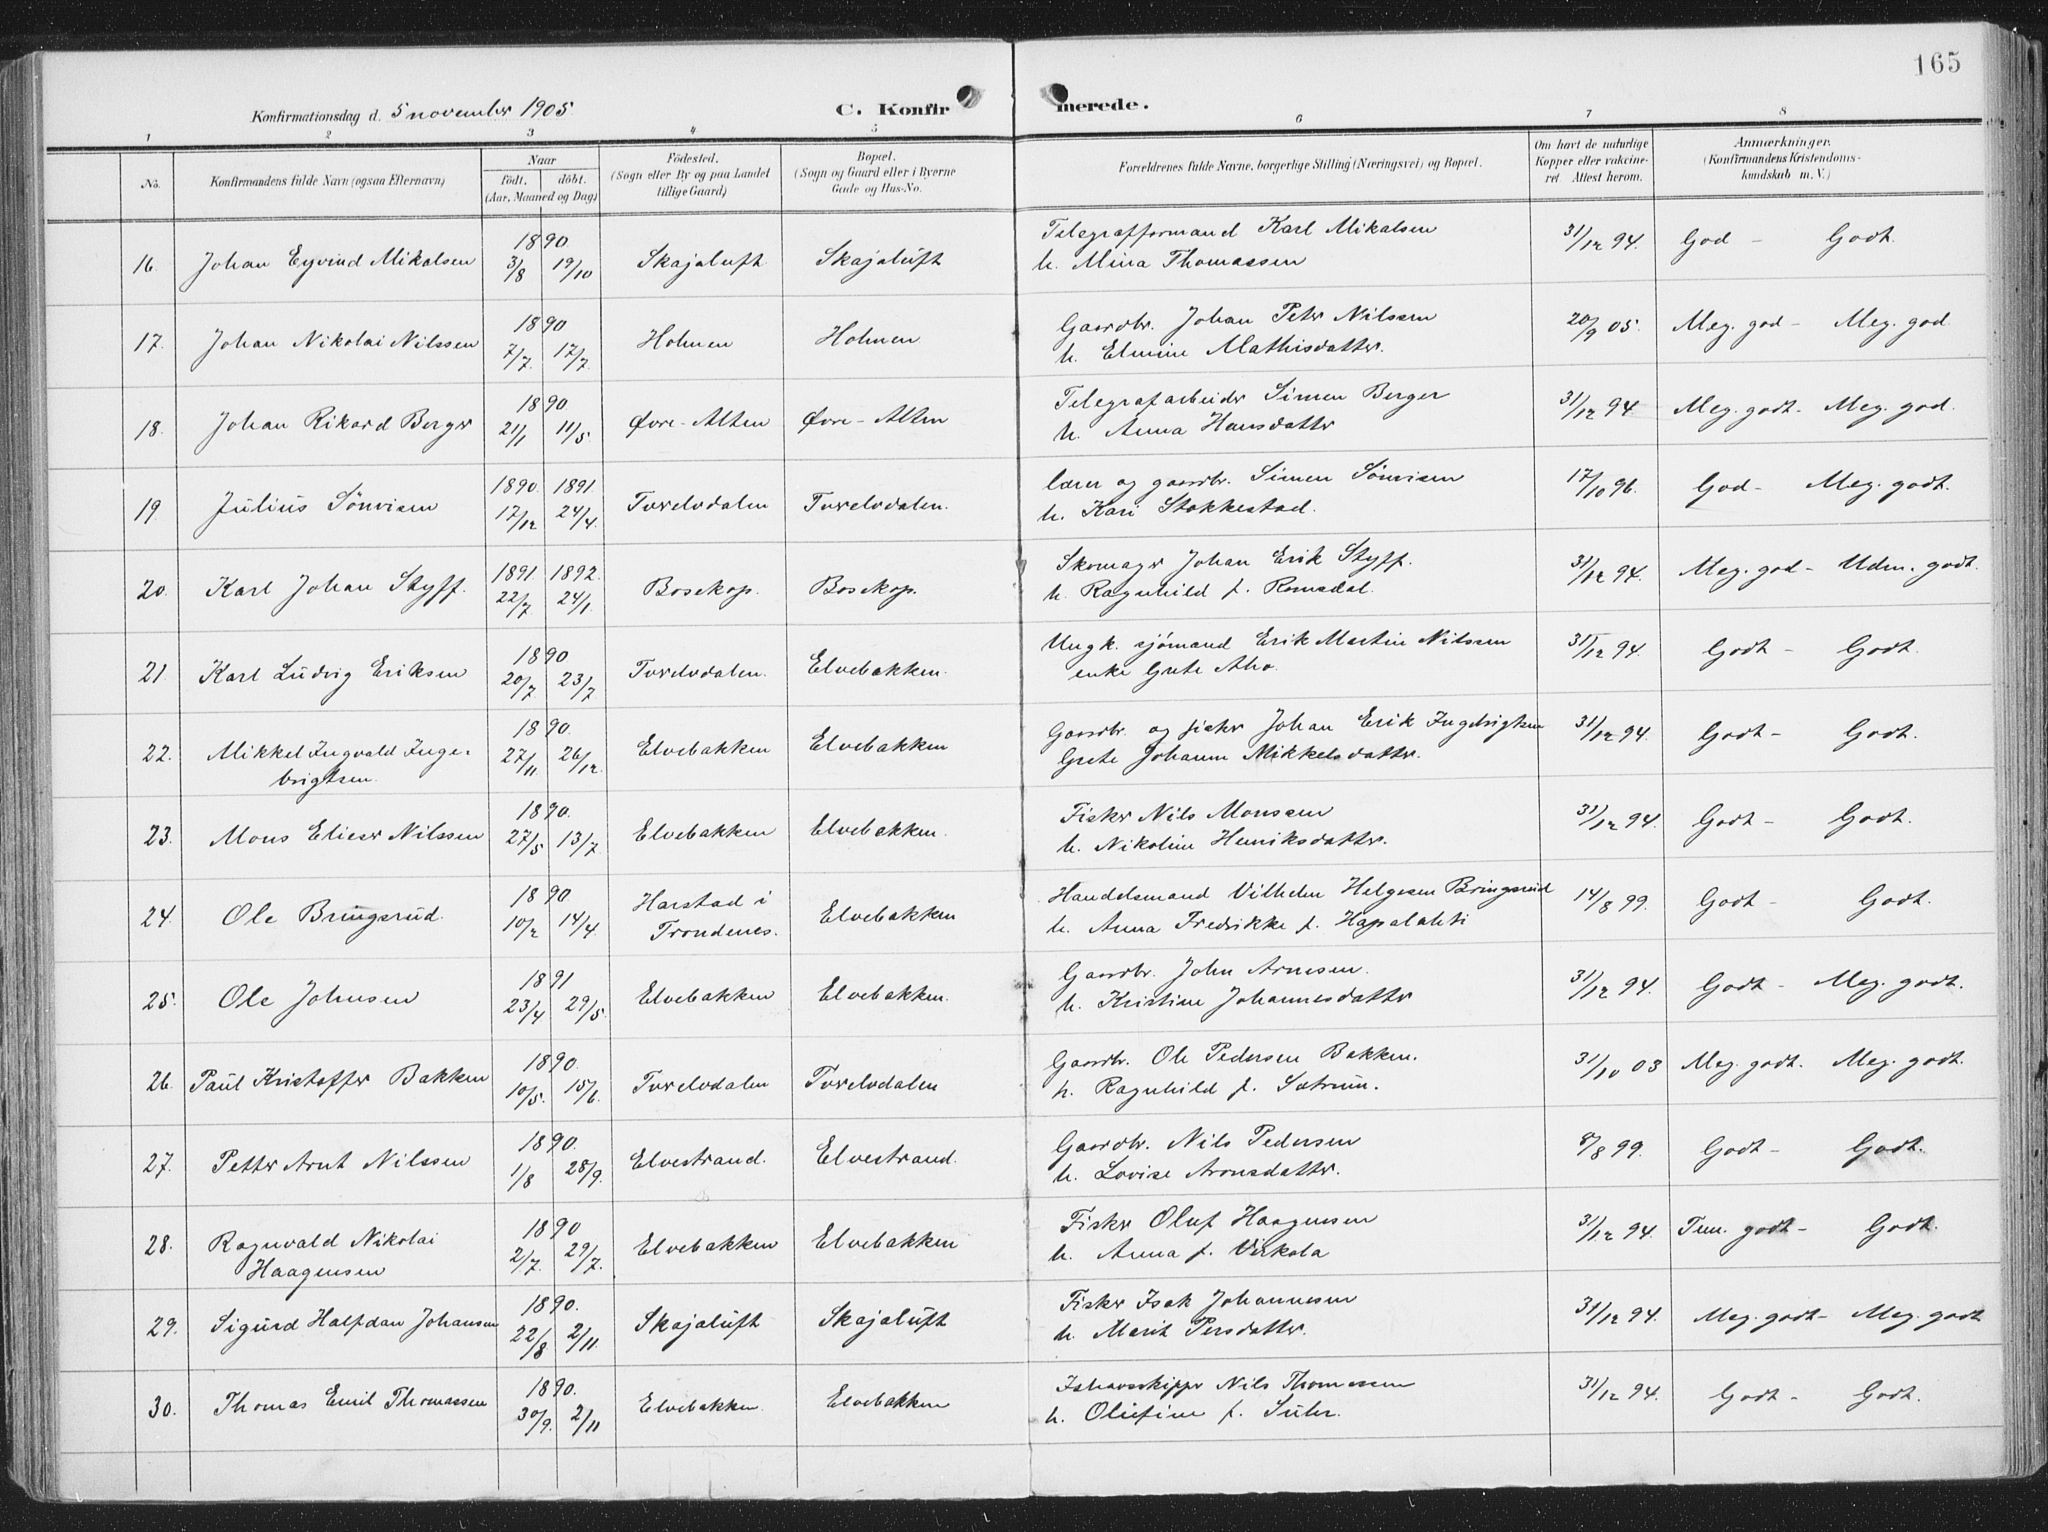 165
Konfirmationsdag d. 5 november 1905.
C. Konfirmerede.
1 2 3 4 5 6 7 8
No.
Konfirmandens fulde Navn (ogsaa Efternavn)
Naar
födt. döbt.
(Aar, Maaned og Dag)
Födested.
(Sogn eller By og paa Landet
tillige Gaard)
Bopæl.
(Sogn og Gaard eller i Byerne
Gade og Hus-No.
Forældrenes fulde Navne, borgerlige Stilling (Næringsvei) og Bopæl.
Om havt de naturlige
Kopper eller vakcine-
ret. Attest herom.
Anmærkninger.
(Konfirmandens Kristendoms-
kundskab m. V.)
1890 Telegrafformand Karl Mikalsen
16. Johan Eyvind Mikalsen 3/8 19/10 Skajaluft Skajaluft h. Mina Thomassen 31/12 94. God - Godt.
1890 Gaardbr. Johan Peter Nilssen
17. Johan Nikolai Nilssen 7/7. 17/7. Holmen Holmen h. Elmine Mathisdatter. 20/9 05. Meg. god - Meg. god.
1890 Telegrafarbeider Simen Berger
18. Johan Rikard Berger 21/1 11/5 Øvre-Alten Øvre-Alten h. Anna Hansdatter 31/12 94. Meg. godt. Meg. god.
1890. 1891. Lærer og gaardbr. Simen Sönvisen
19. Julius Sönvisen 17/12 24/4. Tverelvdalen Tverelvdalen. h. Kari Stokkestad. 17/10 96. God - Meg. godt.
1891. 1892. Skomager Johan Erik Styff.
20. Karl Johan Styff. 22/7 24/1. Bosekop. Bosekop. h. Ragnhild f. Romsdal. 31/12 94. Meg. god - Udm. godt.
1890 Ungk. sjömand Erik Martin Nilssen
21. Karl Ludvig Eriksen 20/7 23/7 Tverelvdalen. Elvebakken. enke Grete Aho. 31/12 94. Godt - Godt.
1890. Gaardbr. og fisker Johan Erik Ingebrigtsen
22. Mikkel Ingvald Inge- 27/11 26/12. Elvebakken Elvebakken Grete Johanne Mikkelsdatter. 31/12 94. Godt - Godt.
brigtsen.
1890. Fisker Nils Monssen
23. Mons Elieser Nilssen 27/5 13/7 Elvebakken Elvebakken. h. Nikoline Henriksdatter. 31/12 94. Godt - Godt.
1890 Harstad i Handelsmand Vilhelm Helgesen Bringsrud
24. Ole Bringsrud. 10/2 14/4. Trondenes. Elvebakken h. Anna Fredrikke f. Hapalahti 14/8 99. Godt - Godt.
1891 Gaardbr. John Arnesen.
25. Ole Johnsen 23/4 29/5. Elvebakken Elvebakken. h. Kristine Johannesdatter 31/12 94. Godt - Meg. godt.
1890. Gaardbr. Ole Pedersen Bakken.
26. Paul Kristoffer Bakken 10/5. 15/6. Tverelvdalen Tverelvdalen h. Ragnhild f. Sætrum. 31/10 03 Meg. godt. Meg. godt.
1890. Gaardbr. Nils Pedersen
27. Petter Arnt Nilssen 1/8 28/9. Elvestrand. Elvestrand. h. Lovise Aronsdatter. 8/8 99. Godt - Godt.
1890 Fisker Oluf Haagensen
28. Ragnvald Nikolai 2/7. 29/7. Elvebakken Elvebakken h. Anna f. Virkola 31/12 94. Tem. godt - Godt.
Haagensen
1890. Fisker Isak Johannesen
29. Sigurd Halfdan Johansen 22/8 2/11. Skajaluft Skajaluft h. Marit Persdatter. 31/12 94. Meg. godt - Meg. godt
1890. Ishavsskipper Nils Thomassen
30. Thomas Emil Thomassen 30/9. 2/11 Elvebakken. Elvebakken h. Olufine f. Suhr. 31/12 94. Godt - Godt.